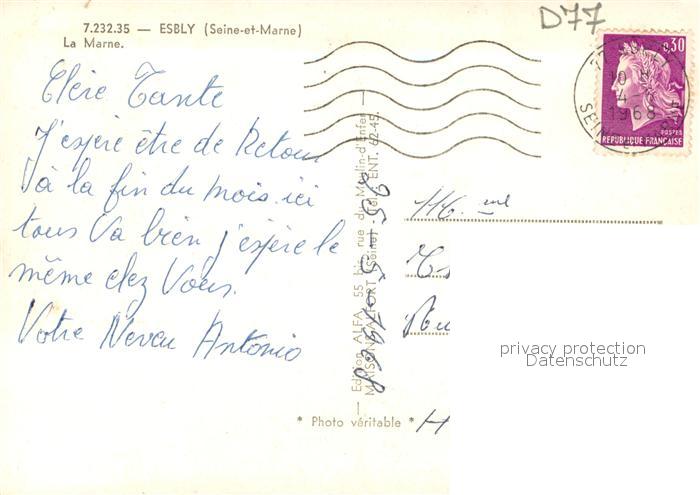 7.232.35 — ESBLY (Seine-et-Marne)
La Marne.
D77
0,30
POSTES
REPUBLIQUE FRANÇAISE
10 H
1968
SEINE
Chère Tante
J'espère être de Retour
à la fin du mois. ici
tous Va bien j'espère le
même chez Vous.
Votre Neveu Antonio
Edition ALFA, 55 bis, rue du Moulin-d'Enfer
MAISONS-ALFORT (Seine) - Tél. ENT. 62-45
* Photo véritable *
privacy protection
Datenschutz